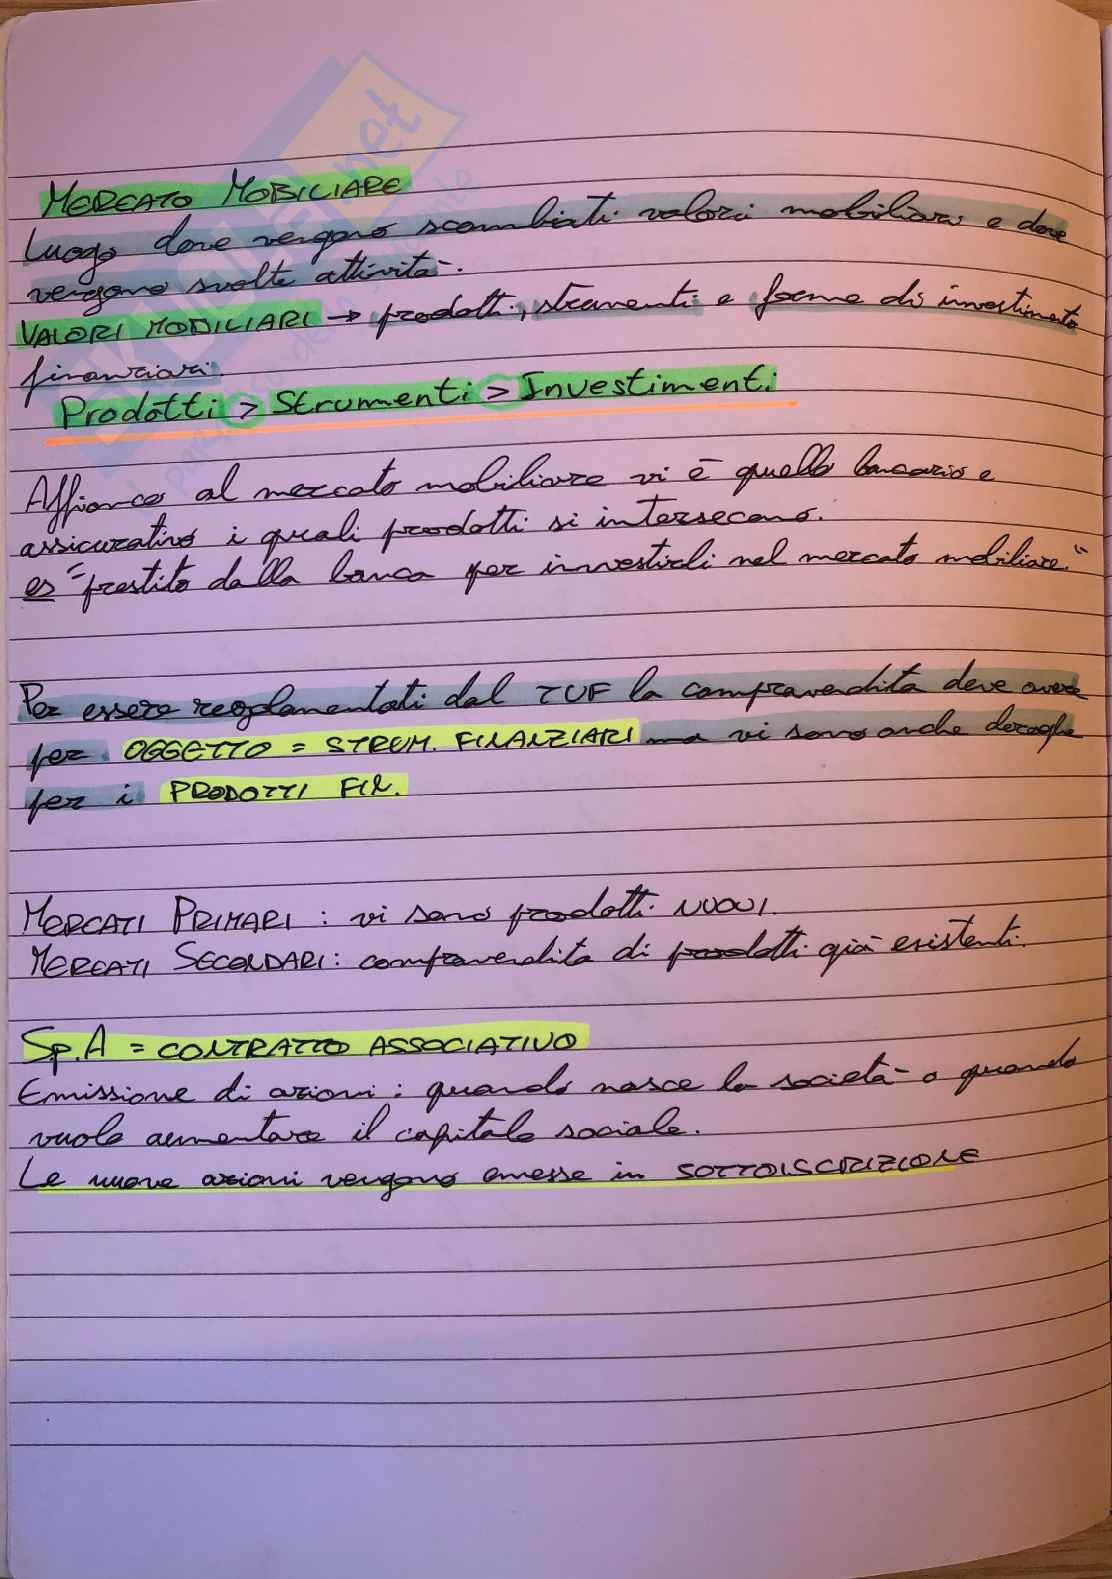 MERCATO MOBILIARE
Luogo dove vengono scambiati valori mobiliari e dove
vengono svolte attività.
VALORI MOBILIARI → prodotti, strumenti e forme di investimento
finanziari.
Prodotti > Strumenti > Investimenti
Affianco al mercato mobiliare vi è quello bancario e
assicurativo i quali prodotti si intersecano.
es "prestito dalla banca per investirli nel mercato mobiliare."
Per essere regolamentati dal TUF la compravendita deve avere
per OGGETTO = STRUM. FINANZIARI ma vi sono anche deroghe
per i PRODOTTI FIN.
MERCATI PRIMARI : vi sono prodotti NUOVI.
MERCATI SECONDARI: compravendita di prodotti già esistenti.
Sp.A = CONTRATTO ASSOCIATIVO
Emissione di azioni : quando nasce la società o quando
vuole aumentare il capitale sociale.
Le nuove azioni vengono emesse in SOTTOISCRIZIONE